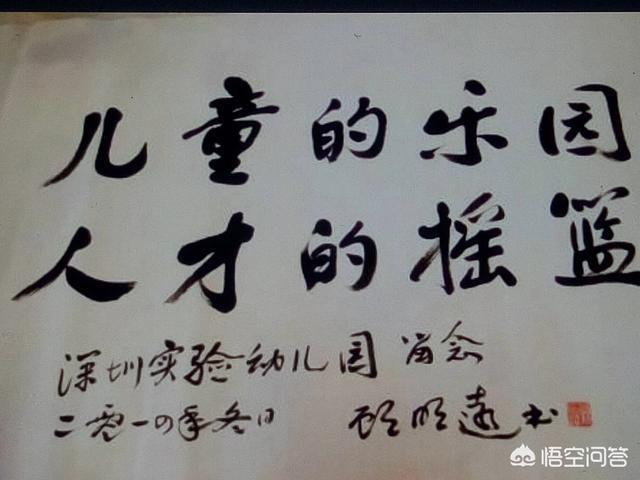 儿童的乐园
人才的摇篮
深圳实验幼儿园 留念
二零一四年冬日 顾明远书
悟空问答